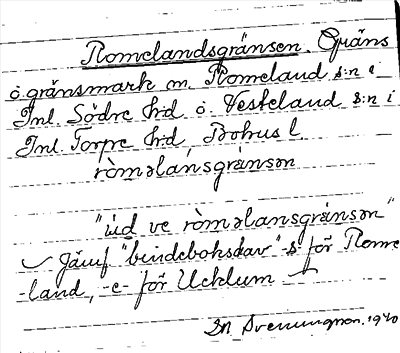 Romelandsgränsen. Gräns
o. gränsmark m. Romeland s:n i
Inl. Södre h:d o. Vesteland s:n i
Inl. Torpe h:d, Bohus l.
ròmǝlánsgrànsǝn
"úd ve ròmǝlansgrànsǝn"
Jämf "bindebohskav" -s- för Rome
-land, -e- för Ucklum
Sn Svenungson. 1940